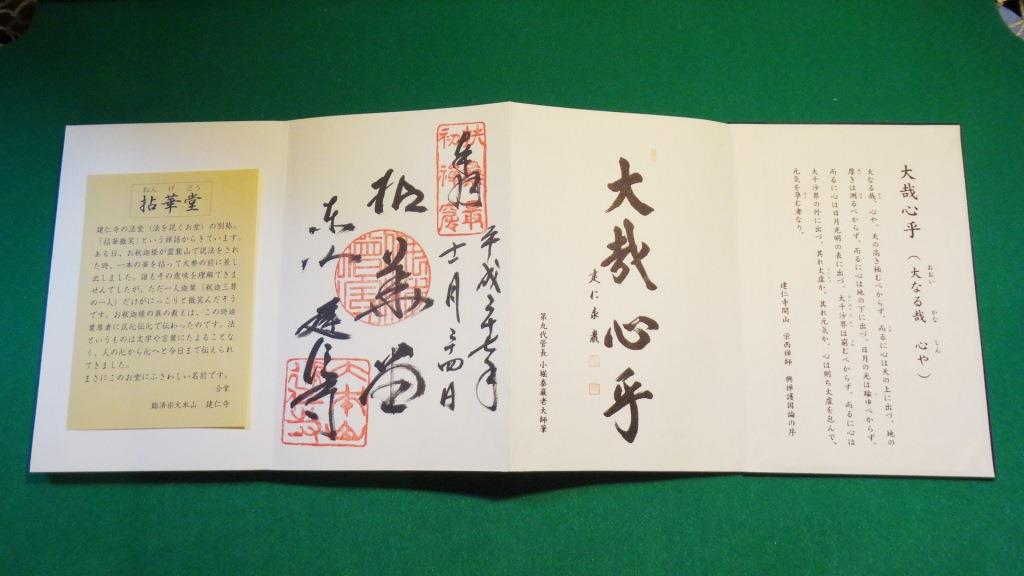 大哉心乎
（大なる哉　心や）
おおい　かな　しん
大なる哉、心や、天の高き極むべからず、而るに心は天の上に出づ、地の
厚きは測るべからず、而るに心は地の下に出づ、日月の光は踰ゆべからず、
而るに心は日月光明の表に出づ、大千沙界は窮むべからず、而るに心は
大千沙界の外に出づ、其れ太虚か、其れ元気か、心は則ち太虚を包んで、
元気を孕む者なり。
建仁寺開山　栄西禅師　興禅護国論の序
大哉心乎
建仁泰巖
第九代管長　小堀泰巖老大師筆
奉拝
扶桑最
初禅窟
平成二十七年
十一月二十四日
拈華堂
東山　建仁寺
大本山
ねんげどう
拈華堂
建仁寺の法堂（法を説くお堂）の別称。
「拈華微笑」という禅語からきています。
ある日、お釈迦様が霊鷲山で説法をされ
た時、一本の華を拈って大衆の前に差し
出しました。誰もその意味を理解できま
せんでしたが、ただ一人迦葉（釈迦三尊
の一人）だけがにっこりと微笑んだそう
です。お釈迦様の真の教えは、この時迦
葉尊者に以心伝心で伝わったのです。法
というものは文字や言葉にたよることな
く、人の心から心へと今日まで伝えられ
てきました。
まさにこのお堂にふさわしい名前です。
合掌
臨済宗大本山　建仁寺